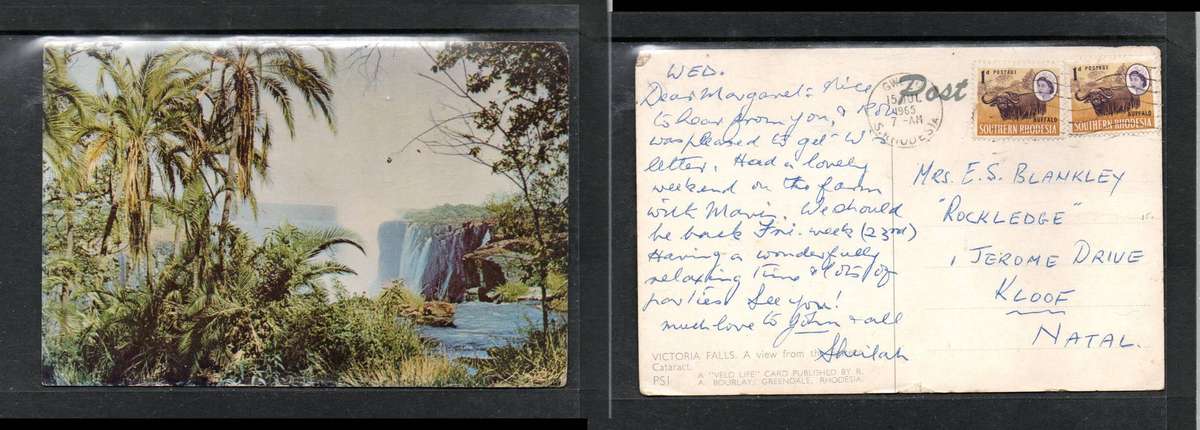 WED.
Dear Margaret: Nice
to hear from you, &
was pleased to get
letter. Had a lovely
weekend on the farm
with Mavis. We should
be back Fri. week (23rd)
Having a wonderfully
relaxing time & lots of
parties. See you!
much love to John & all
Sheilah
VICTORIA FALLS. A view from the
Cataract.
PS1
A "VELD LIFE" CARD PUBLISHED BY R.
A. BOURLAY, GREENDALE, RHODESIA.
Post
15 JUL
1965
7 - AM
S. RHODESIA
1d POSTAGE
BUFFALO
SOUTHERN RHODESIA
1d POSTAGE
BUFFALO
SOUTHERN RHODESIA
MRS. E.S. BLANKLEY
"ROCKLEDGE"
1 JEROME DRIVE
KLOOF
NATAL.